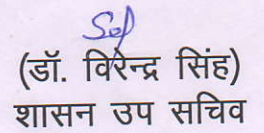 Sd
(डॉ. विरेन्द्र सिंह)
शासन उप सचिव